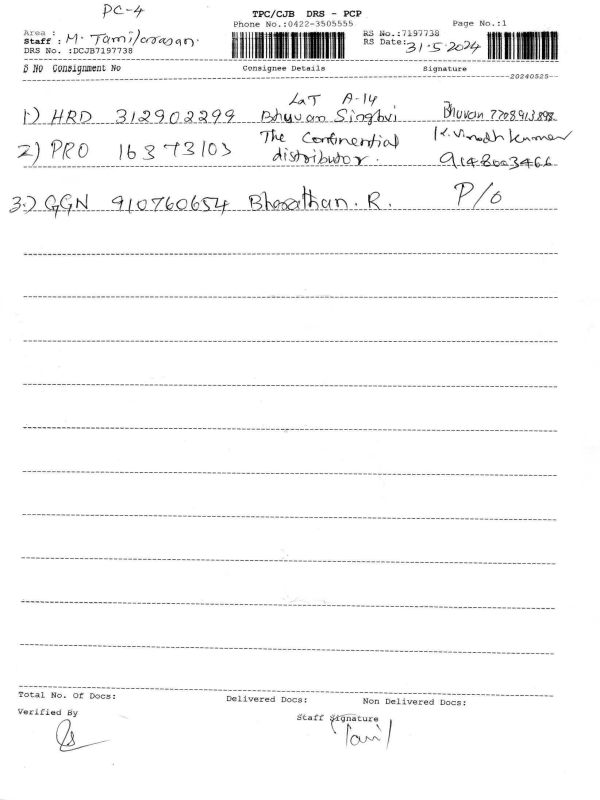 PC-4
TPC/CJB DRS - PCP
Phone No.:0422-3505555
Page No.:1
Area :
Staff : M. Tamilarasan.
DRS No. :DCJB7197738
RS No.:7197738
RS Date: 31.5.2024
S No Consignment No Consignee Details Signature
20240525
LaT A-14
1) HRD 312902299 Bhuvan Singhvi Bhuvan 7708913898
2) PRO 16373103 The Continential K. Vinodh kumar
distributor. 9148003466
3.) GGN 910760654 Bharathan. R. P/o
Total No. Of Docs: Delivered Docs: Non Delivered Docs:
Verified By
Staff Signature
Tamil